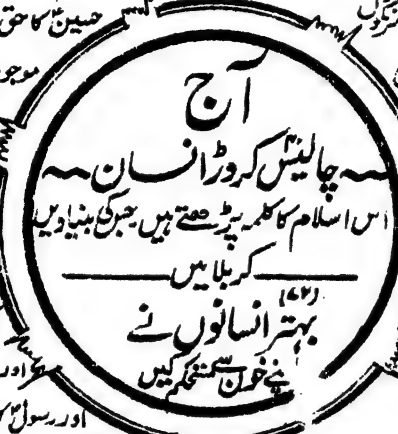 حسینؑ کا حق
موجو
آج
چالیس کروڑ انسان
اس اسلام کا کلمہ پڑھتے ہیں جس کی بنیادیں
کربلا میں
(۷۲)
بہتر انسانوں نے
اپنے خون سے مستحکم کیں
اور
اور رسولؐ